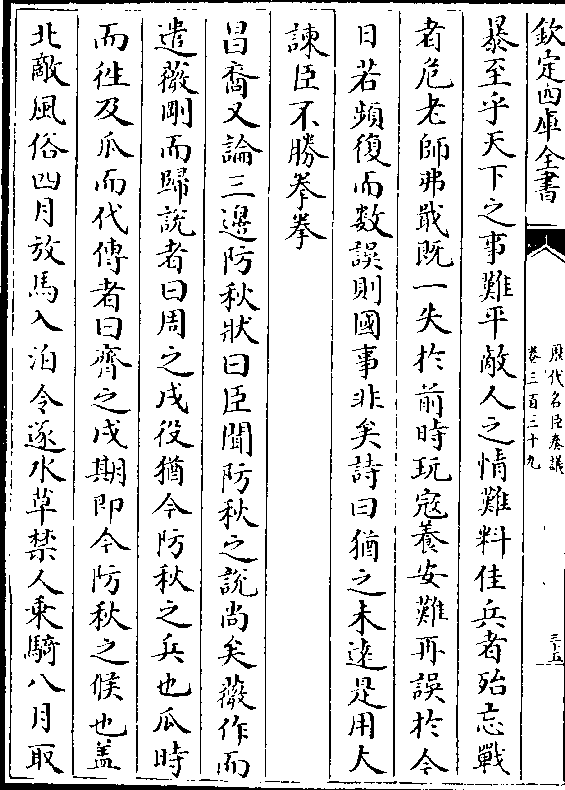 欽定四庫全書
歷代名臣奏議
卷三百三十九
三十五
暴至乎天下之事難平敵人之情難料佳兵者殆忘戰
者危老師弗戢既一失於前時玩寇養安難再誤於今
日若頻復而数誤則國事非矣詩曰猶之未遠是用大
諫臣不勝拳拳
昌裔又論三邊防秋狀曰臣聞防秋之說尚矣薇作而
遣薇剛而歸說者曰周之戍役猶今防秋之兵也瓜時
而徃及瓜而代傳者曰齊之戍期即今防秋之候也盖
北敵風俗四月放馬入泊令逐水草禁人乘騎八月取